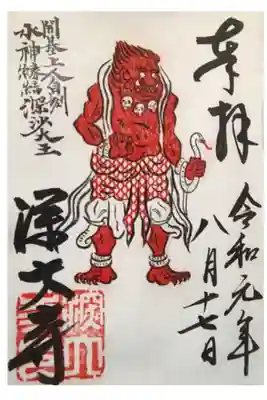 奉拝
令和元年
八月十七日
開基上人自刻
水神縁結深沙大王
深大寺